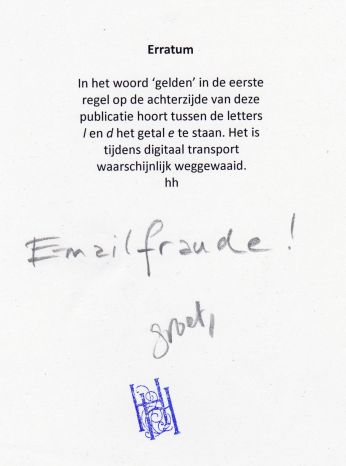 Erratum
In het woord ‘gelden’ in de eerste
regel op de achterzijde van deze
publicatie hoort tussen de letters
l en d het getal e te staan. Het is
tijdens digitaal transport
waarschijnlijk weggewaaid.
hh
E-mailfraude!
groet,
HH